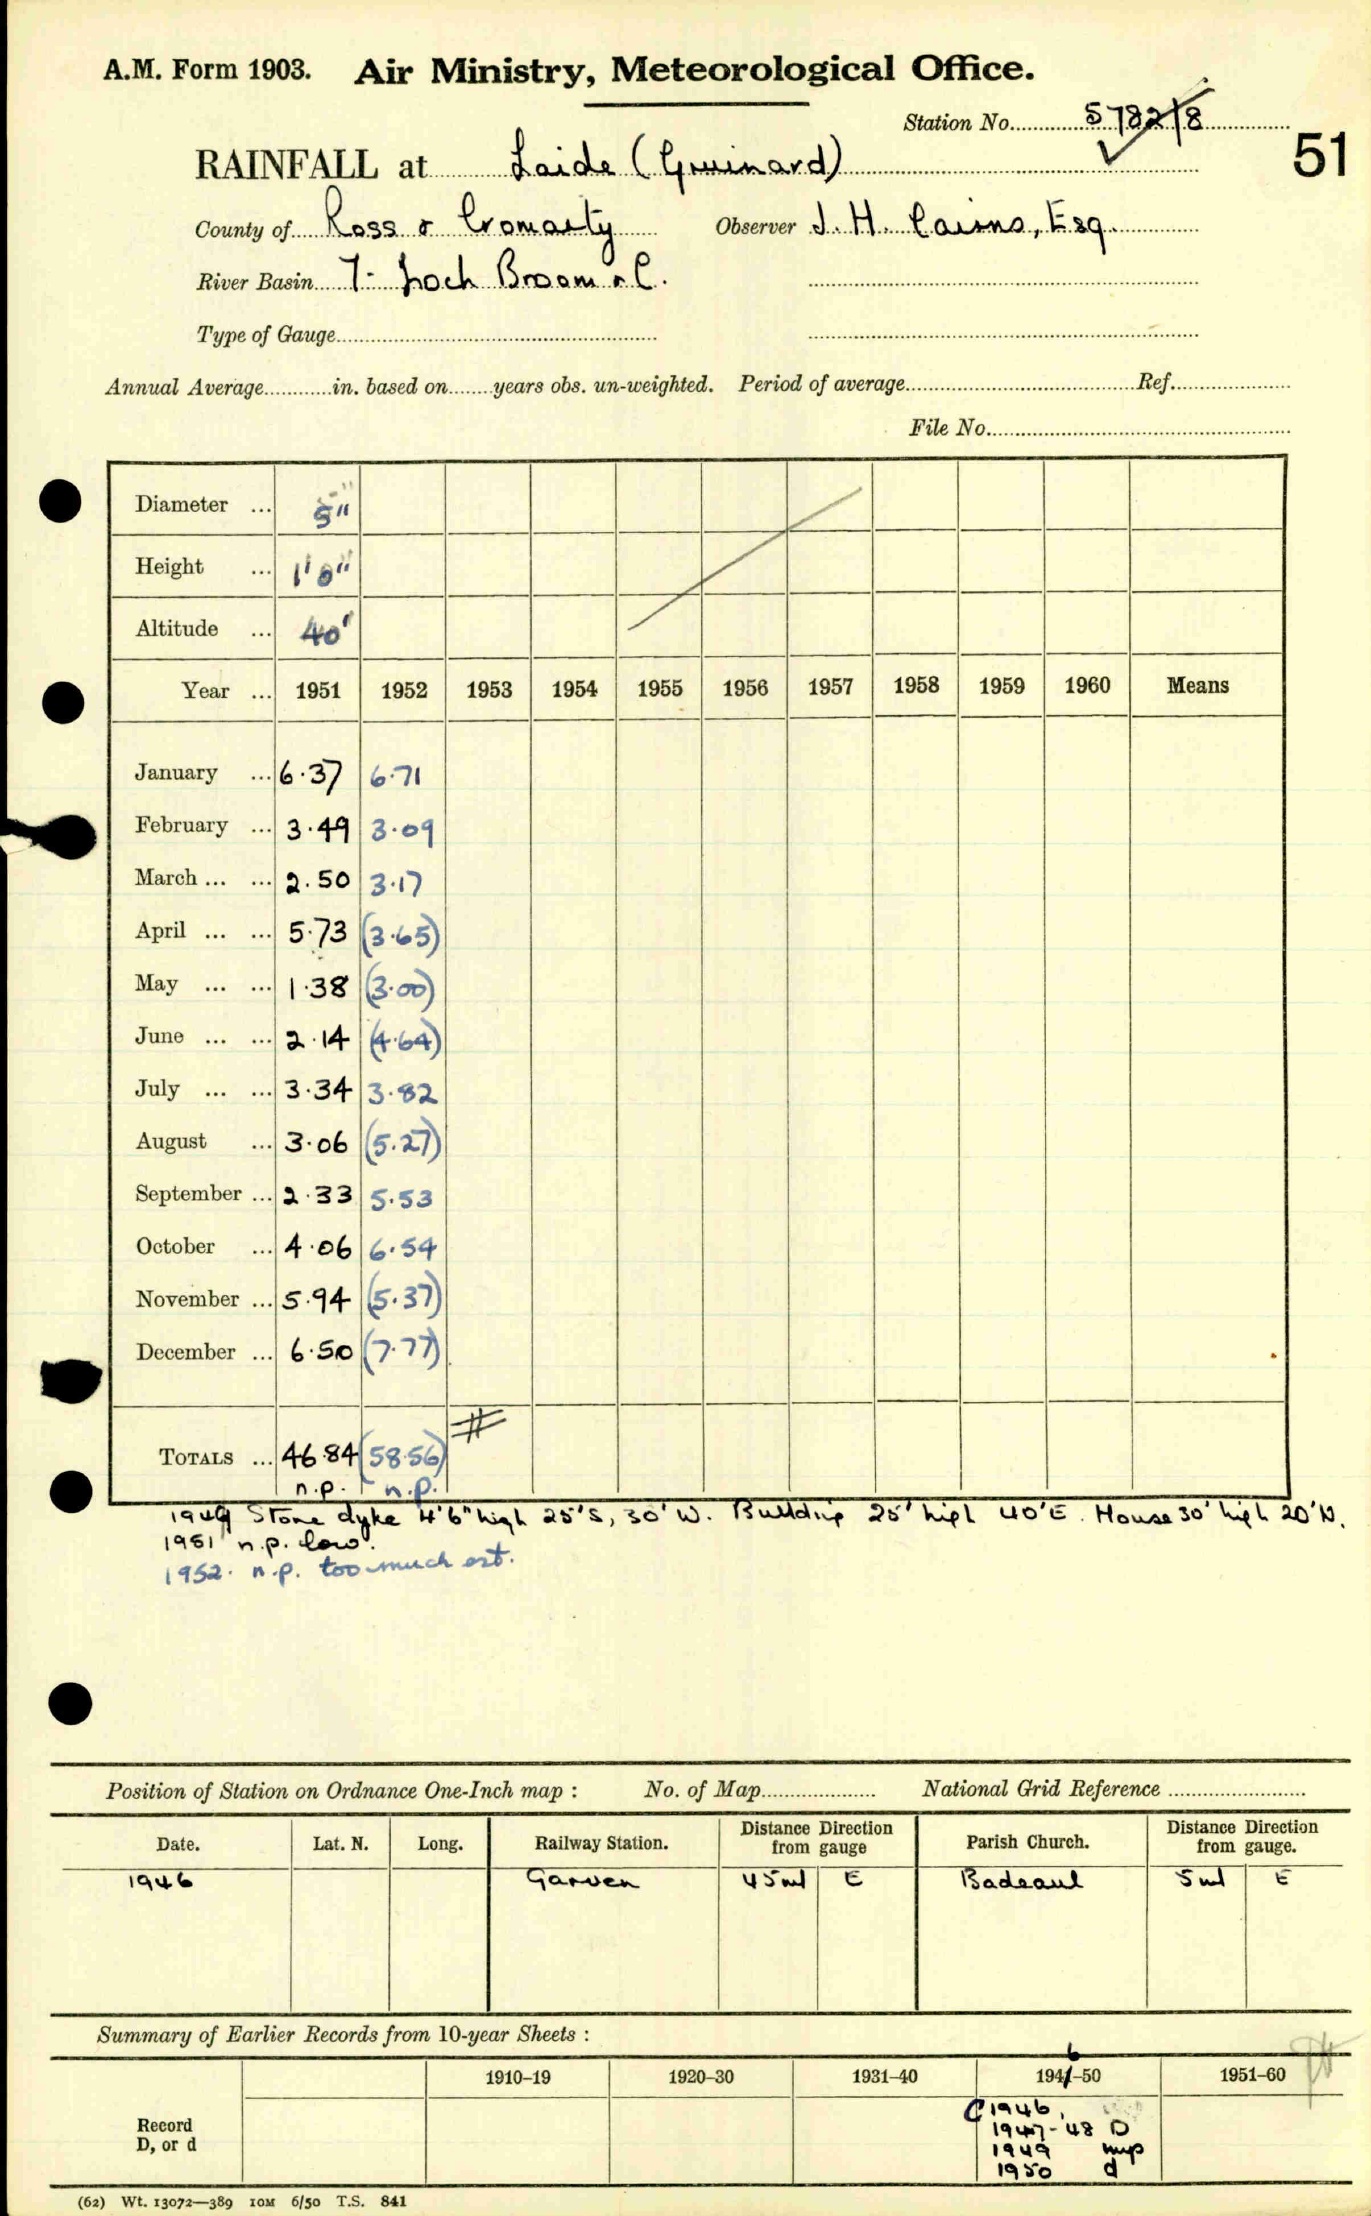 A.M. Form 1903. Air Ministry, Meteorological Office.
Station No. 5782/8
51
RAINFALL at Laide (Gruinard)
County of Ross & Cromarty Observer J. H. Cairns, Esq.
River Basin 7- Loch Broom &C.
Type of Gauge
Annual Average in. based on years obs. un-weighted. Period of average Ref.
File No.
Diameter ... 5"
Height ... 1'0"
Altitude ... 40'
Year ... 1951 1952 1953 1954 1955 1956 1957 1958 1959 1960 Means
January ... 6.37 6.71
February ... 3.49 3.09
March ... ... 2.50 3.17
April ... ... 5.73 (3.65)
May ... ... 1.38 (3.00)
June ... ... 2.14 (4.64)
July ... ... 3.34 3.82
August ... 3.06 (5.27)
September ... 2.33 5.53
October ... 4.06 6.54
November ... 5.94 (5.37)
December ... 6.50 (7.77)
TOTALS ... 46.84 (58.56) #
n.p. n.p.
1949 Stone dyke 4'6" high 25'S, 30'W. Building 25' high 40'E. House 30' high 20'N.
1951 n.p. low.
1952. n.p. too much est.
Position of Station on Ordnance One-Inch map : No. of Map National Grid Reference
Date. Lat. N. Long. Railway Station. Distance Direction from gauge Parish Church. Distance Direction from gauge.
1946 Garven 45ml E Badcaul 5ml E
Summary of Earlier Records from 10-year Sheets :
6
1910–19 1920–30 1931–40 1941–50 1951–60
Record
D, or d
C 1946,
1947-48 D
1949 mp
1950 d
(62) Wt. 13072—389 10M 6/50 T.S. 841